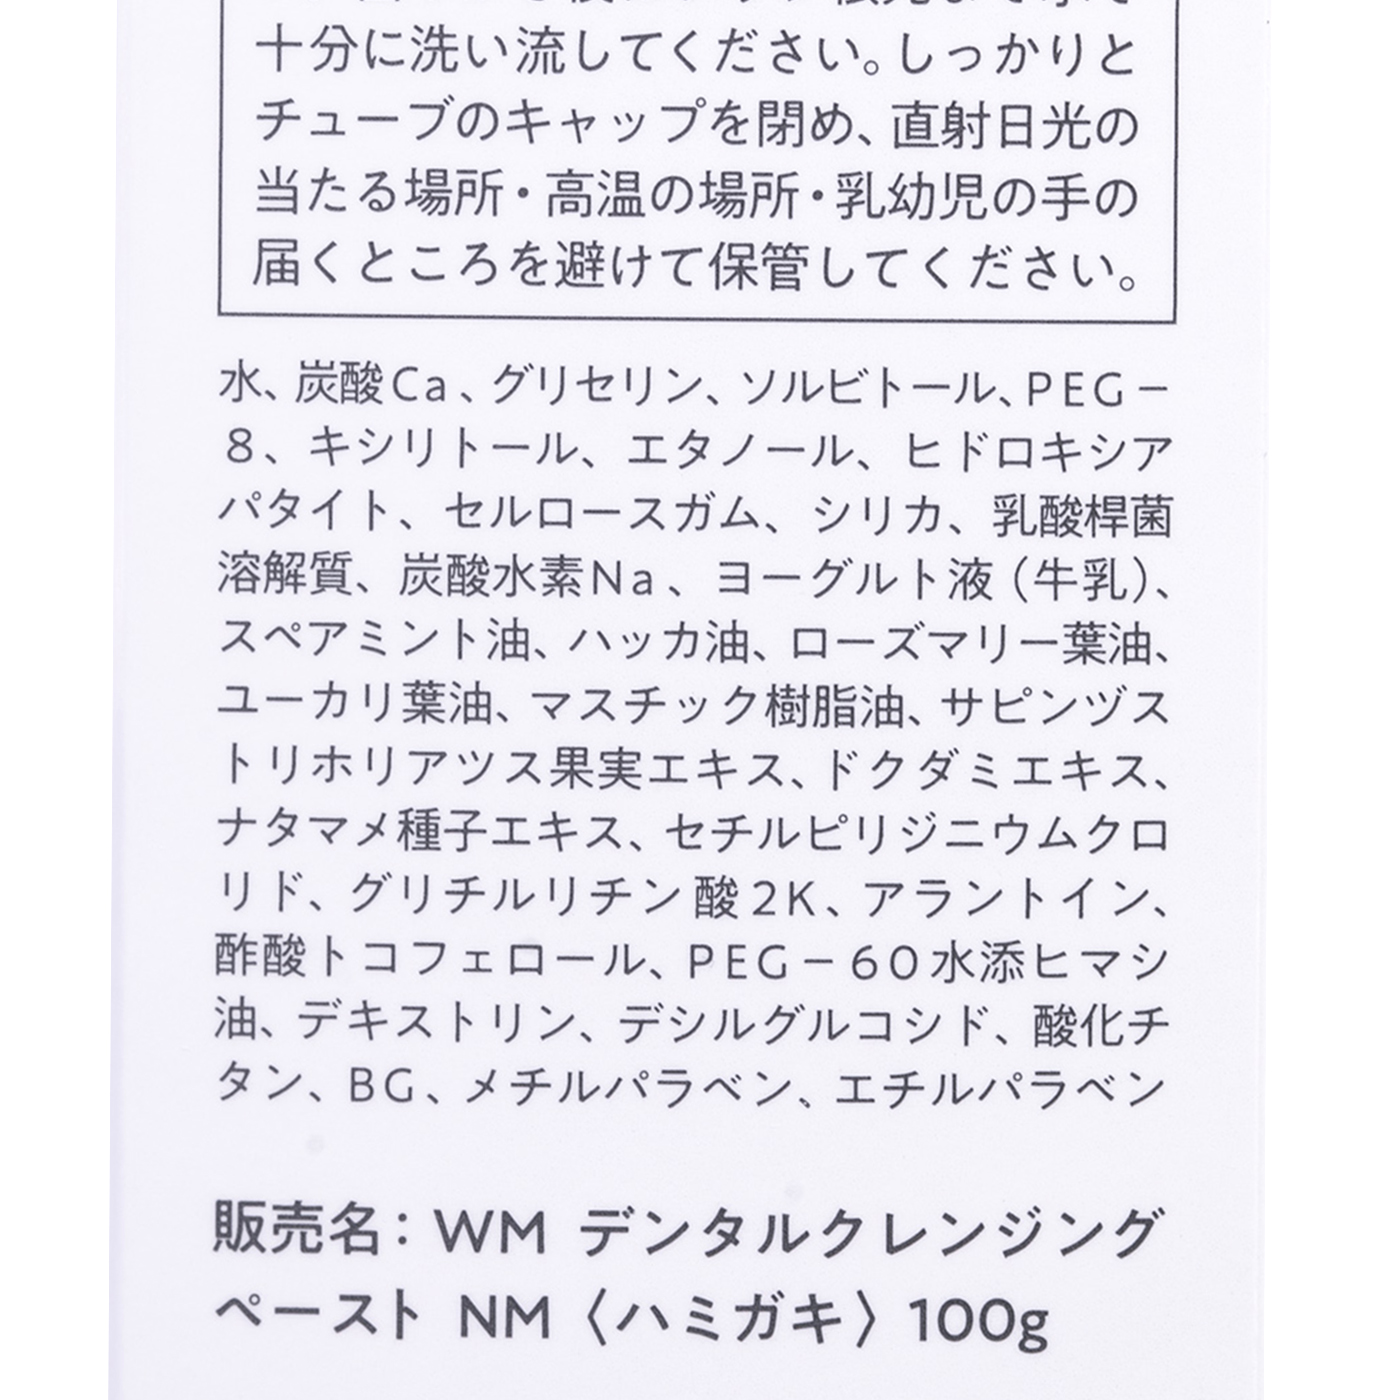 十分に洗い流してください。しっかりと
チューブのキャップを閉め、直射日光の
当たる場所・高温の場所・乳幼児の手の
届くところを避けて保管してください。
水、炭酸Ca、グリセリン、ソルビトール、PEG－
8、キシリトール、エタノール、ヒドロキシア
パタイト、セルロースガム、シリカ、乳酸桿菌
溶解質、炭酸水素Na、ヨーグルト液（牛乳）、
スペアミント油、ハッカ油、ローズマリー葉油、
ユーカリ葉油、マスチック樹脂油、サピンヅス
トリホリアツス果実エキス、ドクダミエキス、
ナタマメ種子エキス、セチルピリジニウムクロ
リド、グリチルリチン酸2K、アラントイン、
酢酸トコフェロール、PEG－60水添ヒマシ
油、デキストリン、デシルグルコシド、酸化チ
タン、BG、メチルパラベン、エチルパラベン
販売名：WM デンタルクレンジング
ペースト NM〈ハミガキ〉100g